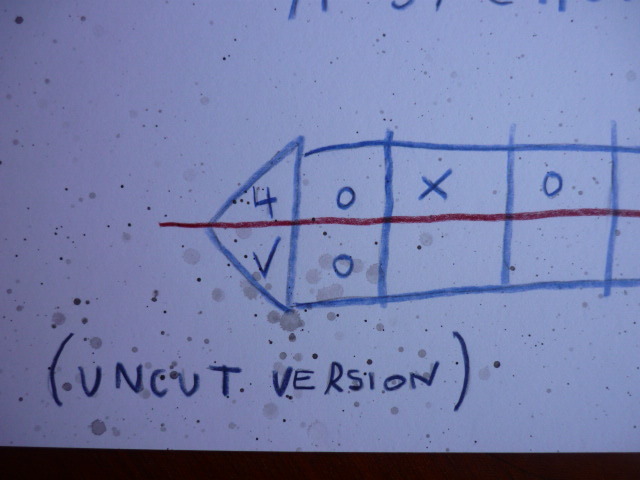 4 O X O
V O
(UNCUT VERSION)